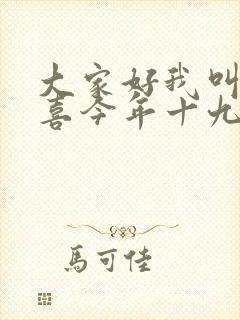 大家好我叫
喜今年十九
馬可佳